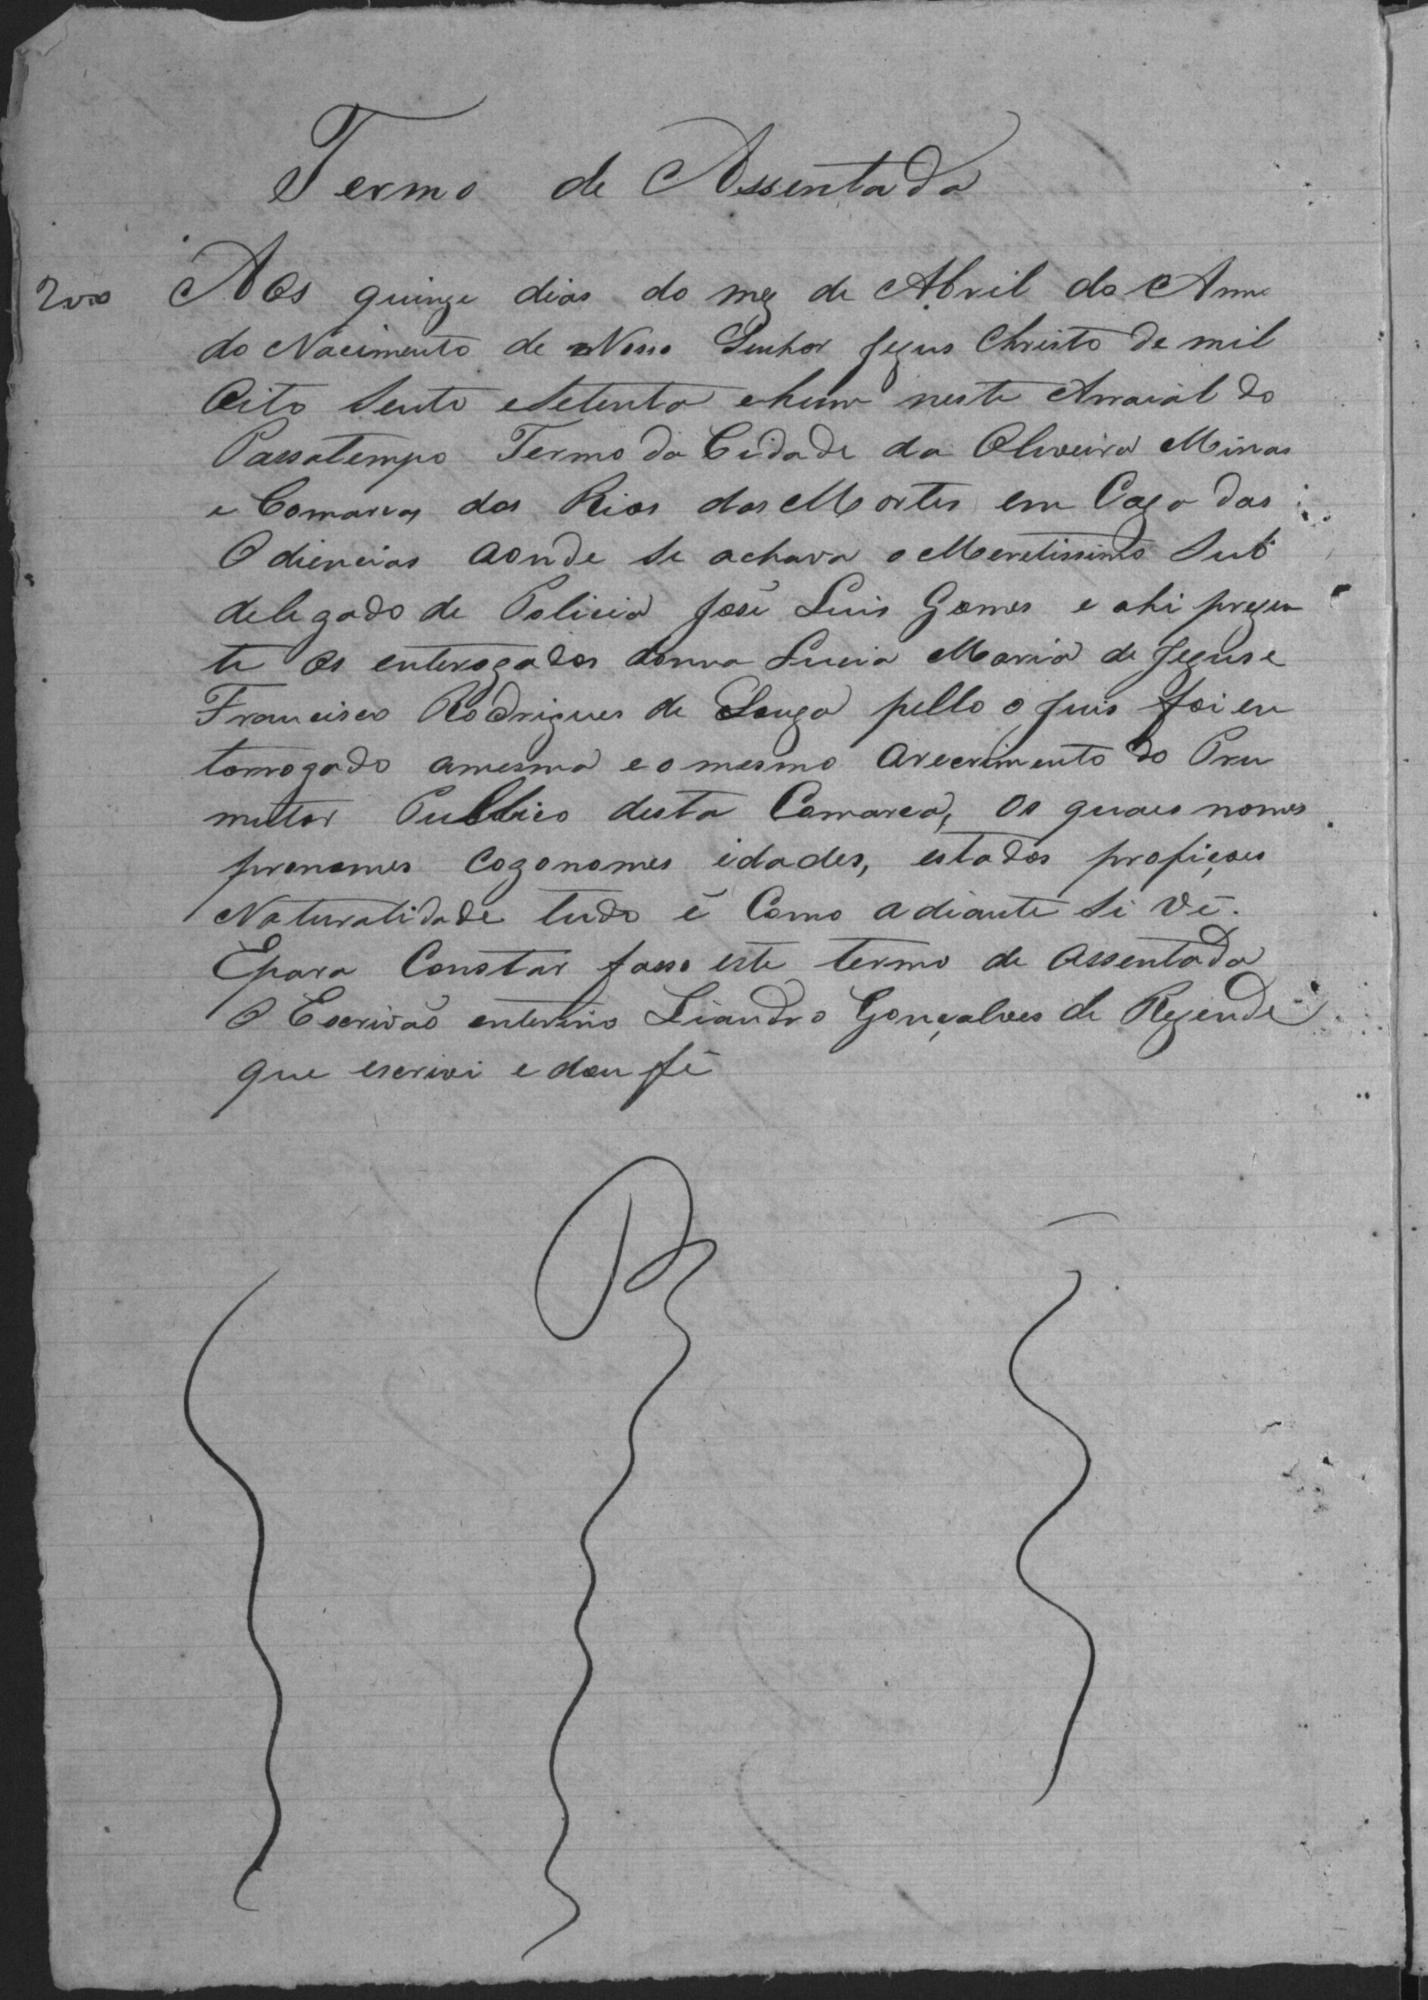 Termo de Assentada
2000 Aos quinze dias do mez de Abril do Anno
do Nacimento de Nosso Senhor Jezus Christo de mil
Oito Sento eSetenta ehum neste Arraial do
Passatempo Termo da Cidade da Oliveira Minas
e Comarca dos Rios das Mortes em Caza das
Odiencias aonde se achava o Meretissimo Sub
delegado de Policia José Luis Gomes e ahi prezen
te os enterogados donna Lucia Maria de Jezus e
Francisco Rodrigues de Souza pello o Juis foi en
terrogado amesma e o mesmo arecrimento do Pru
mutor Publico desta Comarca, os quaes nomes
pronomes cogonomes idades, estados profiçoes
Naturalidade tudo é Como adiante Si Vê.
Epara Constar fasso este termo de assentada
O Escrivão enterino Liandro Gonçalves de Rezende
que escrivi e dou fé